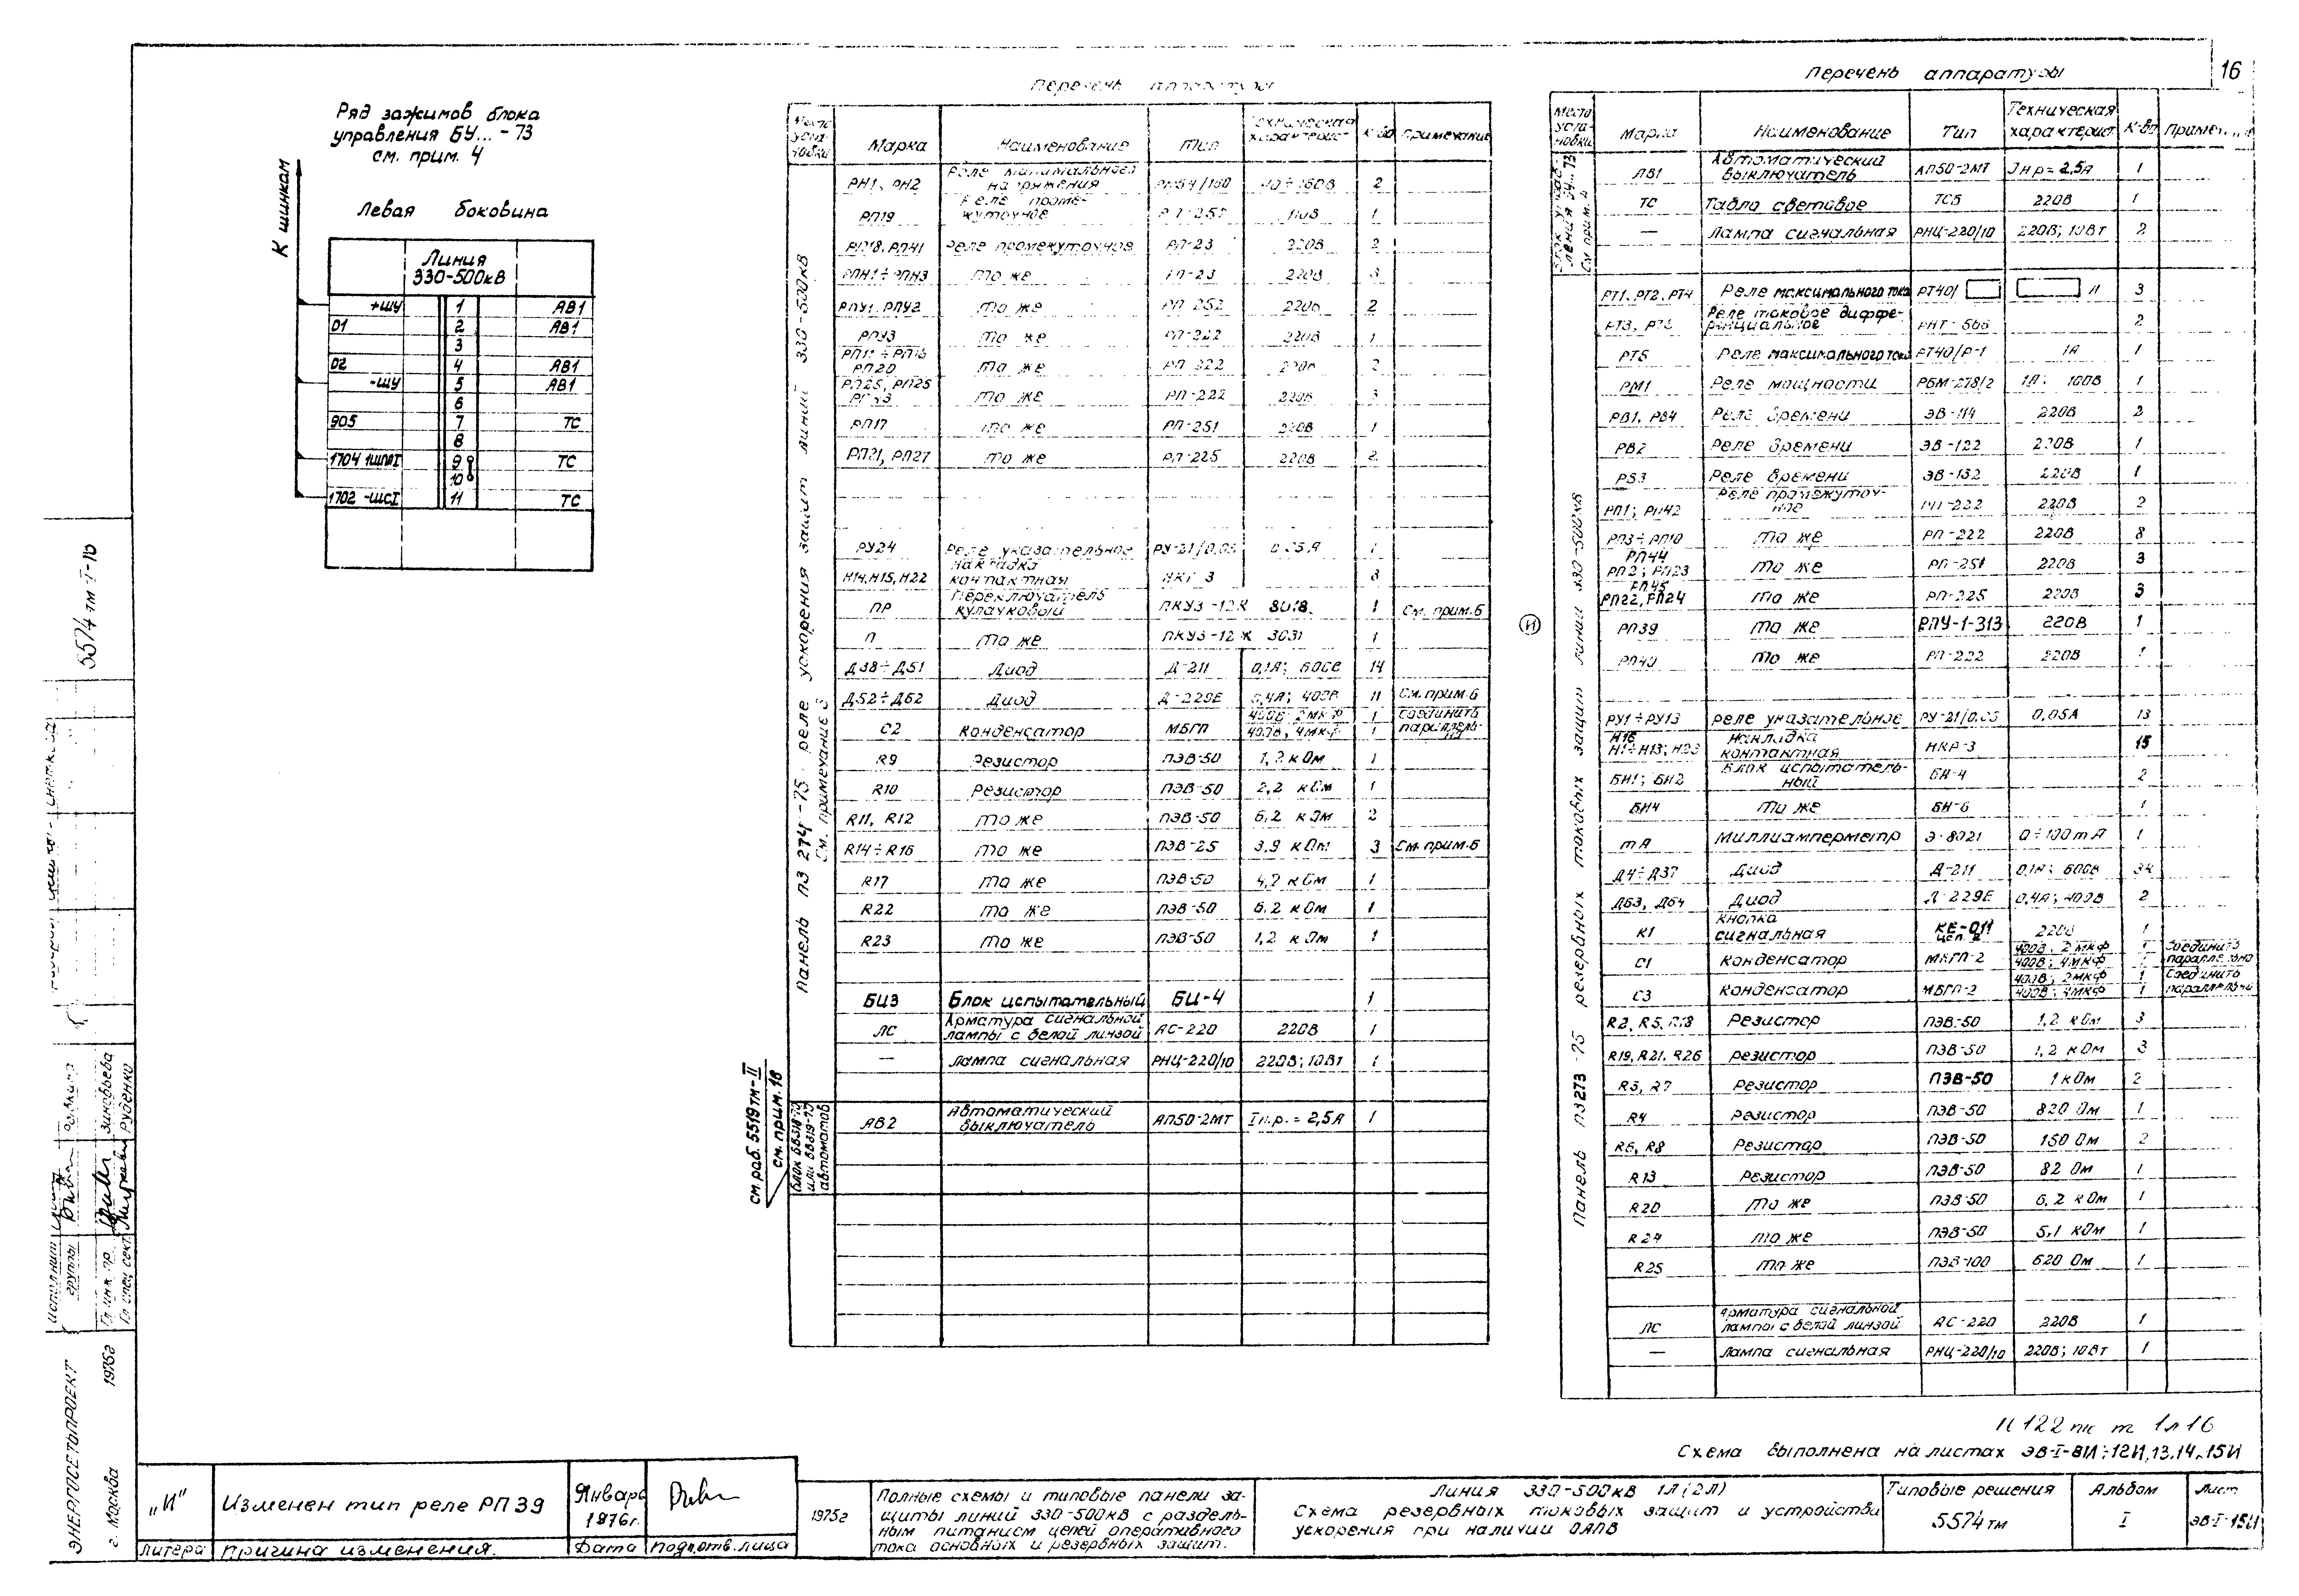 16
Ряд зажимов блока
управления БУ...-73
см. прим. 4
К шинкам
Левая боковина
Линия
330-500кВ
+ШУ 1 АВ1
01 2 АВ1
3
02 4 АВ1
-ШУ 5 АВ1
6
905 7 ТС
8
1704 9 ТС
10
1702 -ШСI 11 ТС
Перечень аппаратуры
Место установки Марка Наименование Тип Техническая характерист. К-во Примечание
Панель ПЗ 274-75 реле ускорения защит линий 330-500кВ
См. примечание 3
РН1, РН2 Реле минимального напряжения 2
РП19 Реле промежуточное 1
РП18, РП41 Реле промежуточное РП-23 220В 2
РПН1÷РПН3 То же РП-23 220В 3
РПУ1, РПУ2 То же РП-252 220В 2
РПУ3 То же РП-222 220В 1
РП20 То же РП-222 220В
РП25 То же РП-222 220В 3
РП17 То же РП-251 220В 1
РП21, РП27 То же РП-225 220В 2
РУ24 Реле указательное РУ-21/0,05 0,05А 1
Н14, Н15, Н22 Накладка контактная НКР-3 3
ПР Переключатель кулачковый ПКУ3-12 1 См. прим. 6
П То же ПКУ3-12Ж 3031 1
Д38÷Д51 Диод Д-211 0,1А; 600В 14
Д52÷Д62 Диод Д-229Е 0,4А; 400В 11 См. прим. 6
С2 Конденсатор МБГП 400В, 2мкф 1 Соединить
400В, 4мкф 1
R9 Резистор ПЭВ-50 1,2 кОм 1
R10 Резистор ПЭВ-50 2,2 кОм 1
R11, R12 То же ПЭВ-50 6,2 кОм 2
R14÷R16 То же ПЭВ-25 3,9 кОм 3 См. прим. 6
R17 То же ПЭВ-50 1
R22 То же ПЭВ-50 6,2 кОм 1
R23 То же ПЭВ-50 1,2 кОм 1
БИ3 Блок испытательный БИ-4 1
ЛС Арматура сигнальной лампы с белой линзой АС-220 220В 1
— Лампа сигнальная РНЦ-220/10 220В; 10Вт 1
см. раб. 5519тм-II
см. прим. 18
автоматов
АВ2 Автоматический выключатель АП50-2МТ Iн.р. = 2,5А 1
Перечень аппаратуры
Место установки Марка Наименование Тип Техническая характерист. К-во
См. прим. 4
АВ1 Автоматический выключатель АП50-2МТ Iнр = 2,5А 1
ТС Табло световое ТСБ 220В 1
— Лампа сигнальная РНЦ-220/10 220В; 10Вт 2
Панель ПЗ273-75 резервных токовых защит линий 330-500кВ
РТ1, РТ2, РТ4 Реле максимального тока РТ40/ А 3
Реле токовое дифференциальное 2
РТ5 Реле максимального тока РТ40/Р-1 1А 1
РМ1 Реле мощности РБМ-278/2 1А; 100В 1
РВ1, РВ4 Реле времени ЭВ-114 220В 2
РВ2 Реле времени ЭВ-122 220В 1
РВ3 Реле времени ЭВ-132 220В 1
РП1; РП42 Реле промежуточное РП-222 220В 2
РП3÷РП10 То же РП-222 220В 8
РП44
РП2; РП23 То же РП-251 220В 3
РП45
РП22, РП24 То же РП-225 220В 3
И
РП39 То же РПУ-1-313 220В 1
РП40 То же РП-222 220В 1
РУ1÷РУ13 реле указательное РУ-21/0,05 0,05А 13
Н16
Н1÷Н13; Н23 Накладка контактная НКР-3 15
БИ1; БИ2 Блок испытательный БИ-4 2
БИ4 То же БИ-6 1
mA Миллиамперметр Э-8021 0÷100mA 1
Д4÷Д37 Диод Д-211 0,1А; 600В 34
Д63, Д64 Диод Д-229Е 0,4А; 400В 2
К1 Кнопка сигнальная КЕ-011 220В 1
С1 Конденсатор МБГП-2 400В; 2мкф 1 Соединить
400В; 4мкф параллельно
С3 Конденсатор МБГП-2 400В; 2мкф 1 Соединить
400В; 4мкф 1 параллельно
R2, R5, R18 Резистор ПЭВ-50 1,2 кОм 3
R19, R21, R26 резистор ПЭВ-50 1,2 кОм 3
R3, R7 резистор ПЭВ-50 1кОм 2
R4 резистор ПЭВ-50 820 Ом 1
R6, R8 Резистор ПЭВ-50 150 Ом 2
R13 Резистор ПЭВ-50 82 Ом 1
R20 То же ПЭВ-50 6,2 кОм 1
R24 То же ПЭВ-50 5,1 кОм 1
R25 То же ПЭВ-100 620 Ом 1
ЛС Арматура сигнальной лампы с белой линзой АС-220 220В 1
— Лампа сигнальная РНЦ-220/10 220В; 10Вт 1
Схема выполнена на листах ЭВ-I-8И÷12И,13,14,15И
„И" Изменен тип реле РП39 Январь 1976г.
литера причина изменения. Дата подп.отв.лица
1975г
Полные схемы и типовые панели за-
щиты линий 330-500кВ с раздель-
ным питанием цепей оперативного
тока основных и резервных защит.
Линия 330-500кВ 1Л(2Л)
Схема резервных токовых защит и устройства
ускорения при наличии ОАПВ
Типовые решения
5574тм
Альбом
I
Лист
ЭВ-I-15И
5574тм-I-16
ЭНЕРГОСЕТЬПРОЕКТ
г. Москва 1975г
Зиновьева
Руденко